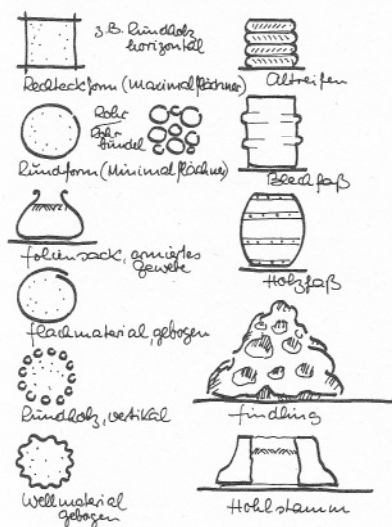 z.B. Rundholz
horizontal
Rechteckform (Maximalflächner)
Rohr
Rohr
bündel
Rundform (Minimalflächner)
foliensack, armiertes
Gewebe
flachmaterial, gebogen
Rundholz, vertikal
Wellmaterial
gebogen
Altreifen
Blechfaß
Holzfaß
findling
Hohlstamm